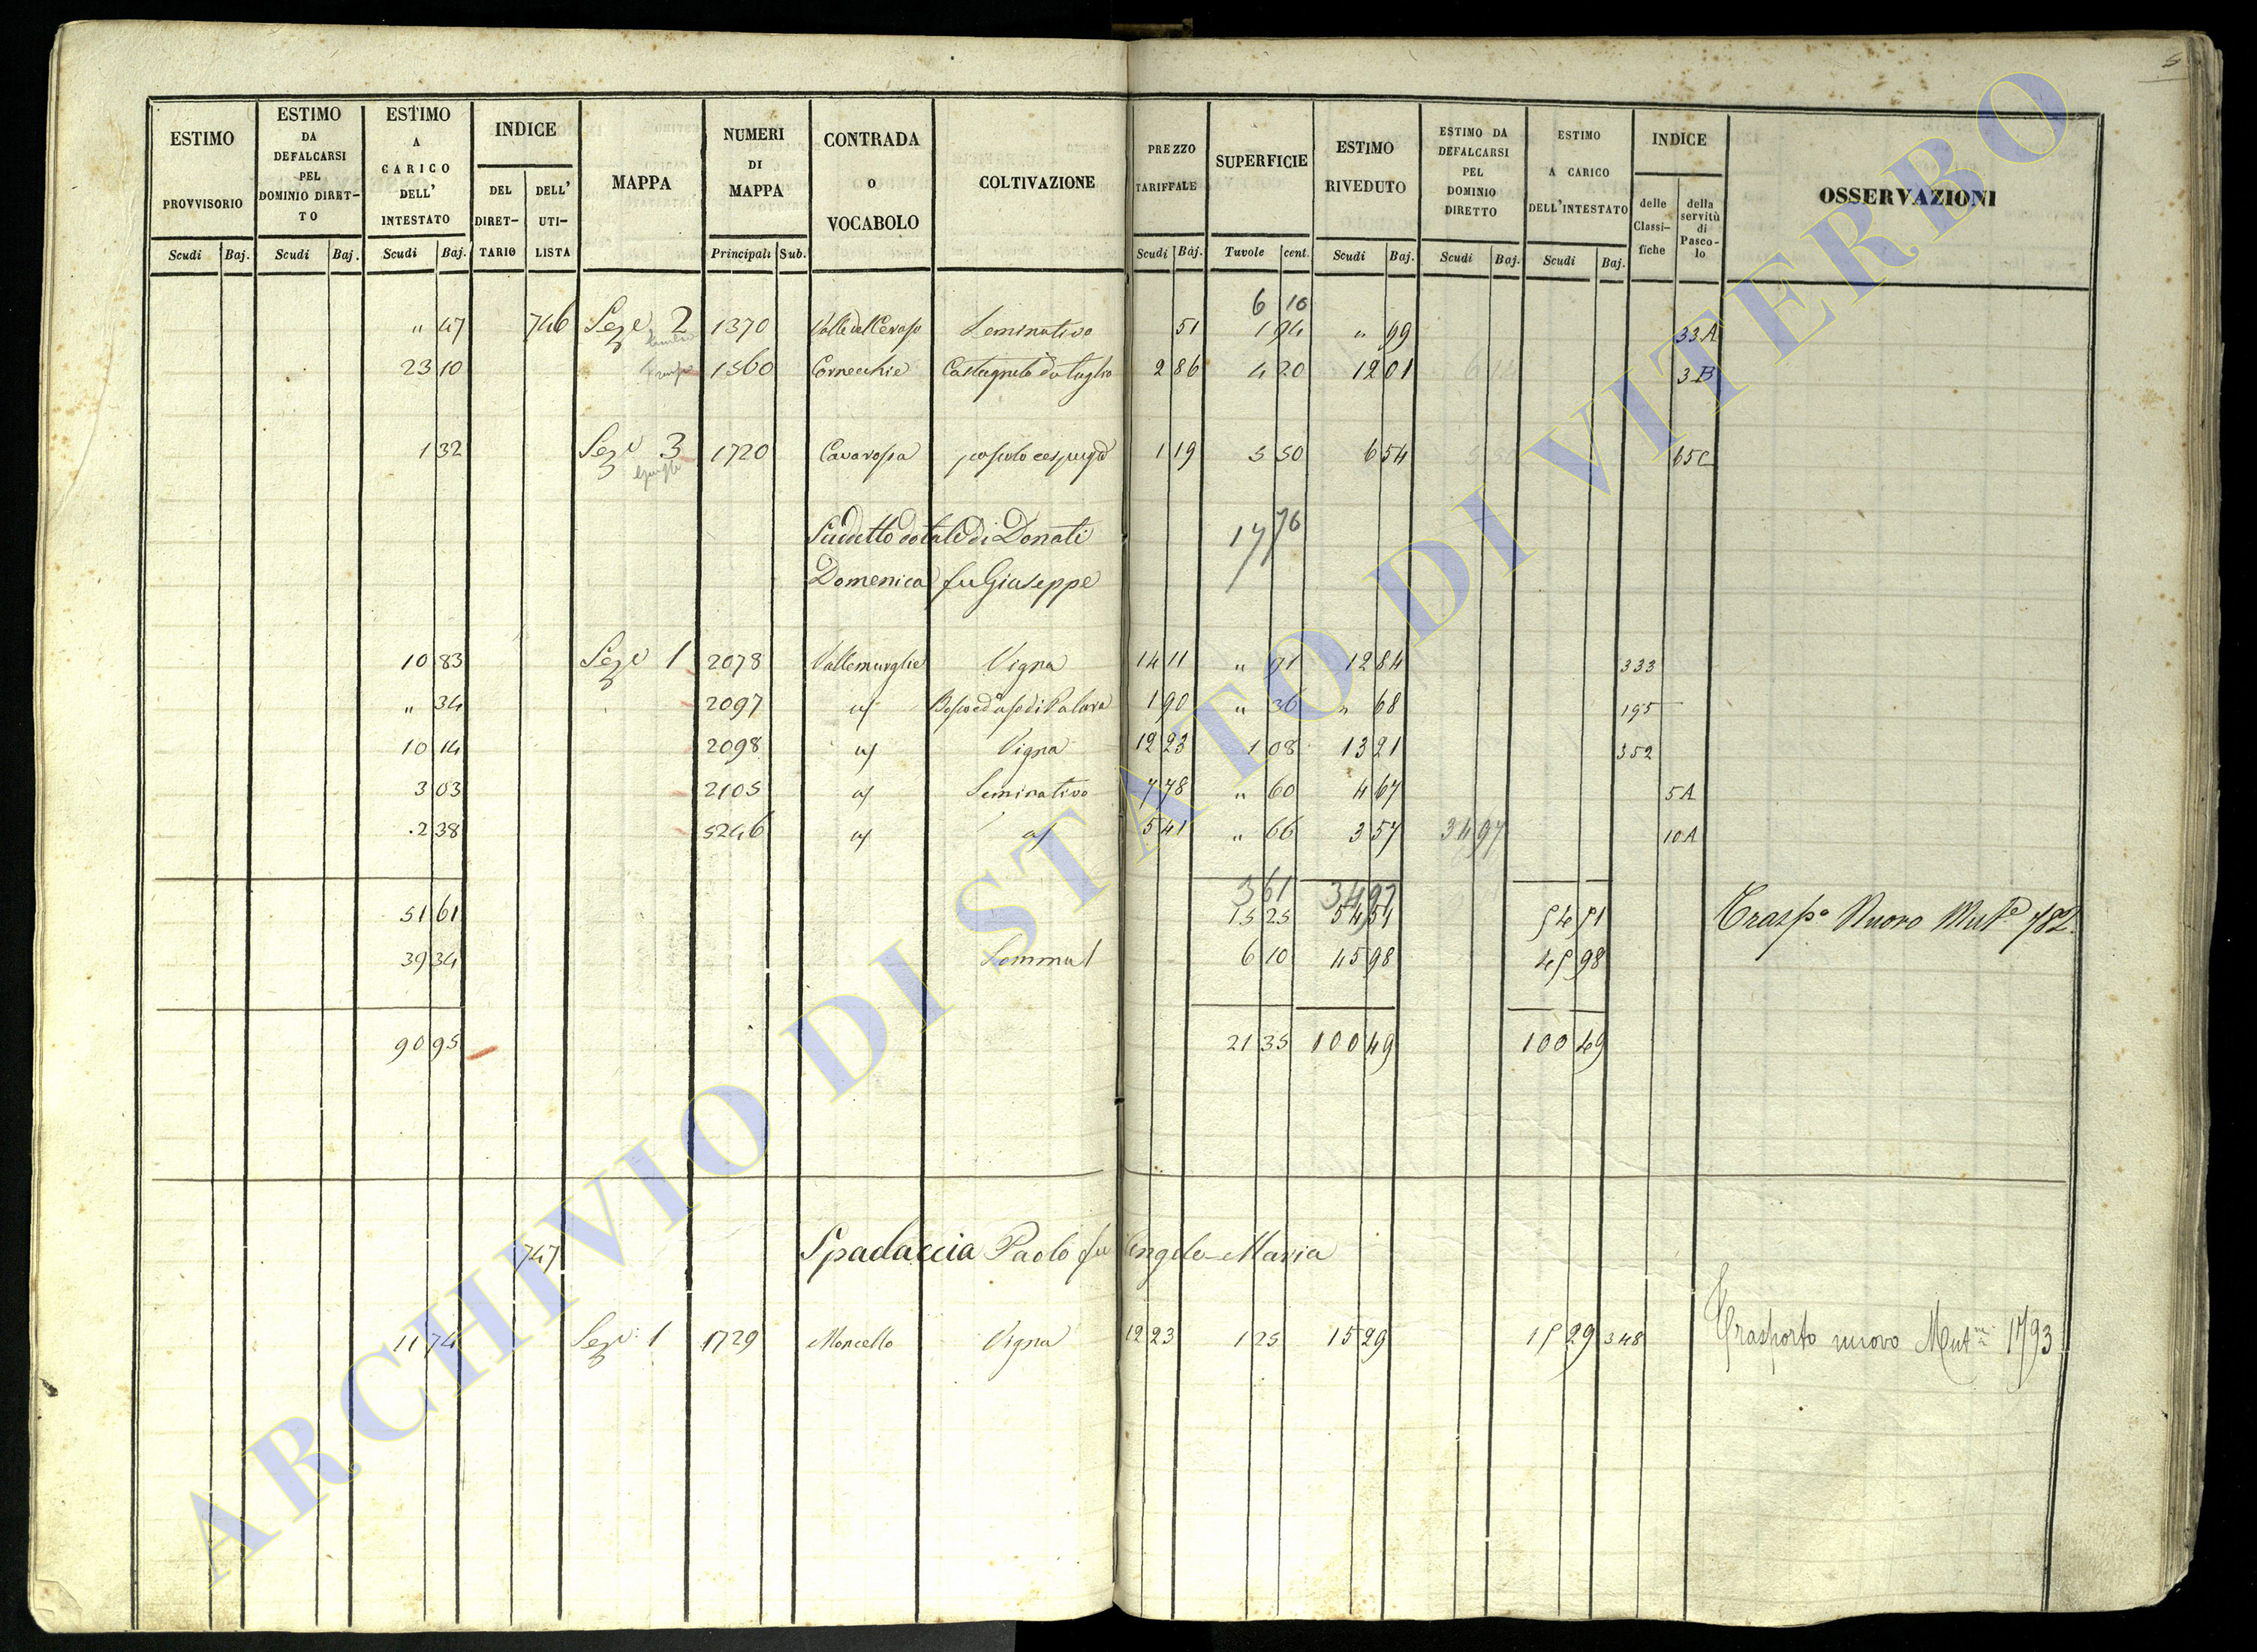 5
ESTIMO PROVVISORIO Scudi Baj.
ESTIMO DA DEFALCARSI PEL DOMINIO DIRET-TO Scudi Baj.
ESTIMO A CARICO DELL' INTESTATO Scudi Baj.
INDICE DEL DIRET-TARIO DELL' UTI-LISTA
MAPPA
NUMERI DI MAPPA Principali Sub.
CONTRADA o VOCABOLO
COLTIVAZIONE
PREZZO TARIFFALE Scudi Baj.
SUPERFICIE Tavole cent.
ESTIMO RIVEDUTO Scudi Baj.
ESTIMO DA DEFALCARSI PEL DOMINIO DIRETTO Scudi Baj.
ESTIMO A CARICO DELL'INTESTATO Scudi Baj.
INDICE delle Classi-fiche della servitù di Pasco-lo
OSSERVAZIONI
6 10
" 47 746 Seze 2 1370 Seminativo 51 1 94 " 99 33A
23 10 1360 Cornecchie Castagneto da taglio 2 86 4 20 12 01 3B
1 32 Seze 3 1720 Cavarossa pascolo cespugo 1 19 5 50 6 54 65C
Suddetto dotale di Donati 17 76
Domenica fu Giuseppe
10 83 Seze 1 2078 Vallemuglie Vigna 14 11 " 91 12 84 333
" 34 2097 a/ 1 90 " 36 " 68 195
10 14 2098 a/ Vigna 12 23 1 08 13 21 352
3 03 2105 a/ Seminativo 7 78 " 60 4 67 5A
2 38 5246 a/ a/ 5 41 " 66 3 57 34 97 10A
3 61 34 97
51 61 15 25 54 51 54 51 Traspo Nuovo Mute 782.
39 34 Somma 6 10 45 98 45 98
90 95 21 35 100 49 100 49
747 Spadaccia Paolo fu Angelo Maria
11 74 Seze 1 1729 Moncello Vigna 12 23 1 25 15 29 15 29 348 Trasporto nuovo 1793
ARCHIVIO DI STATO DI VITERBO